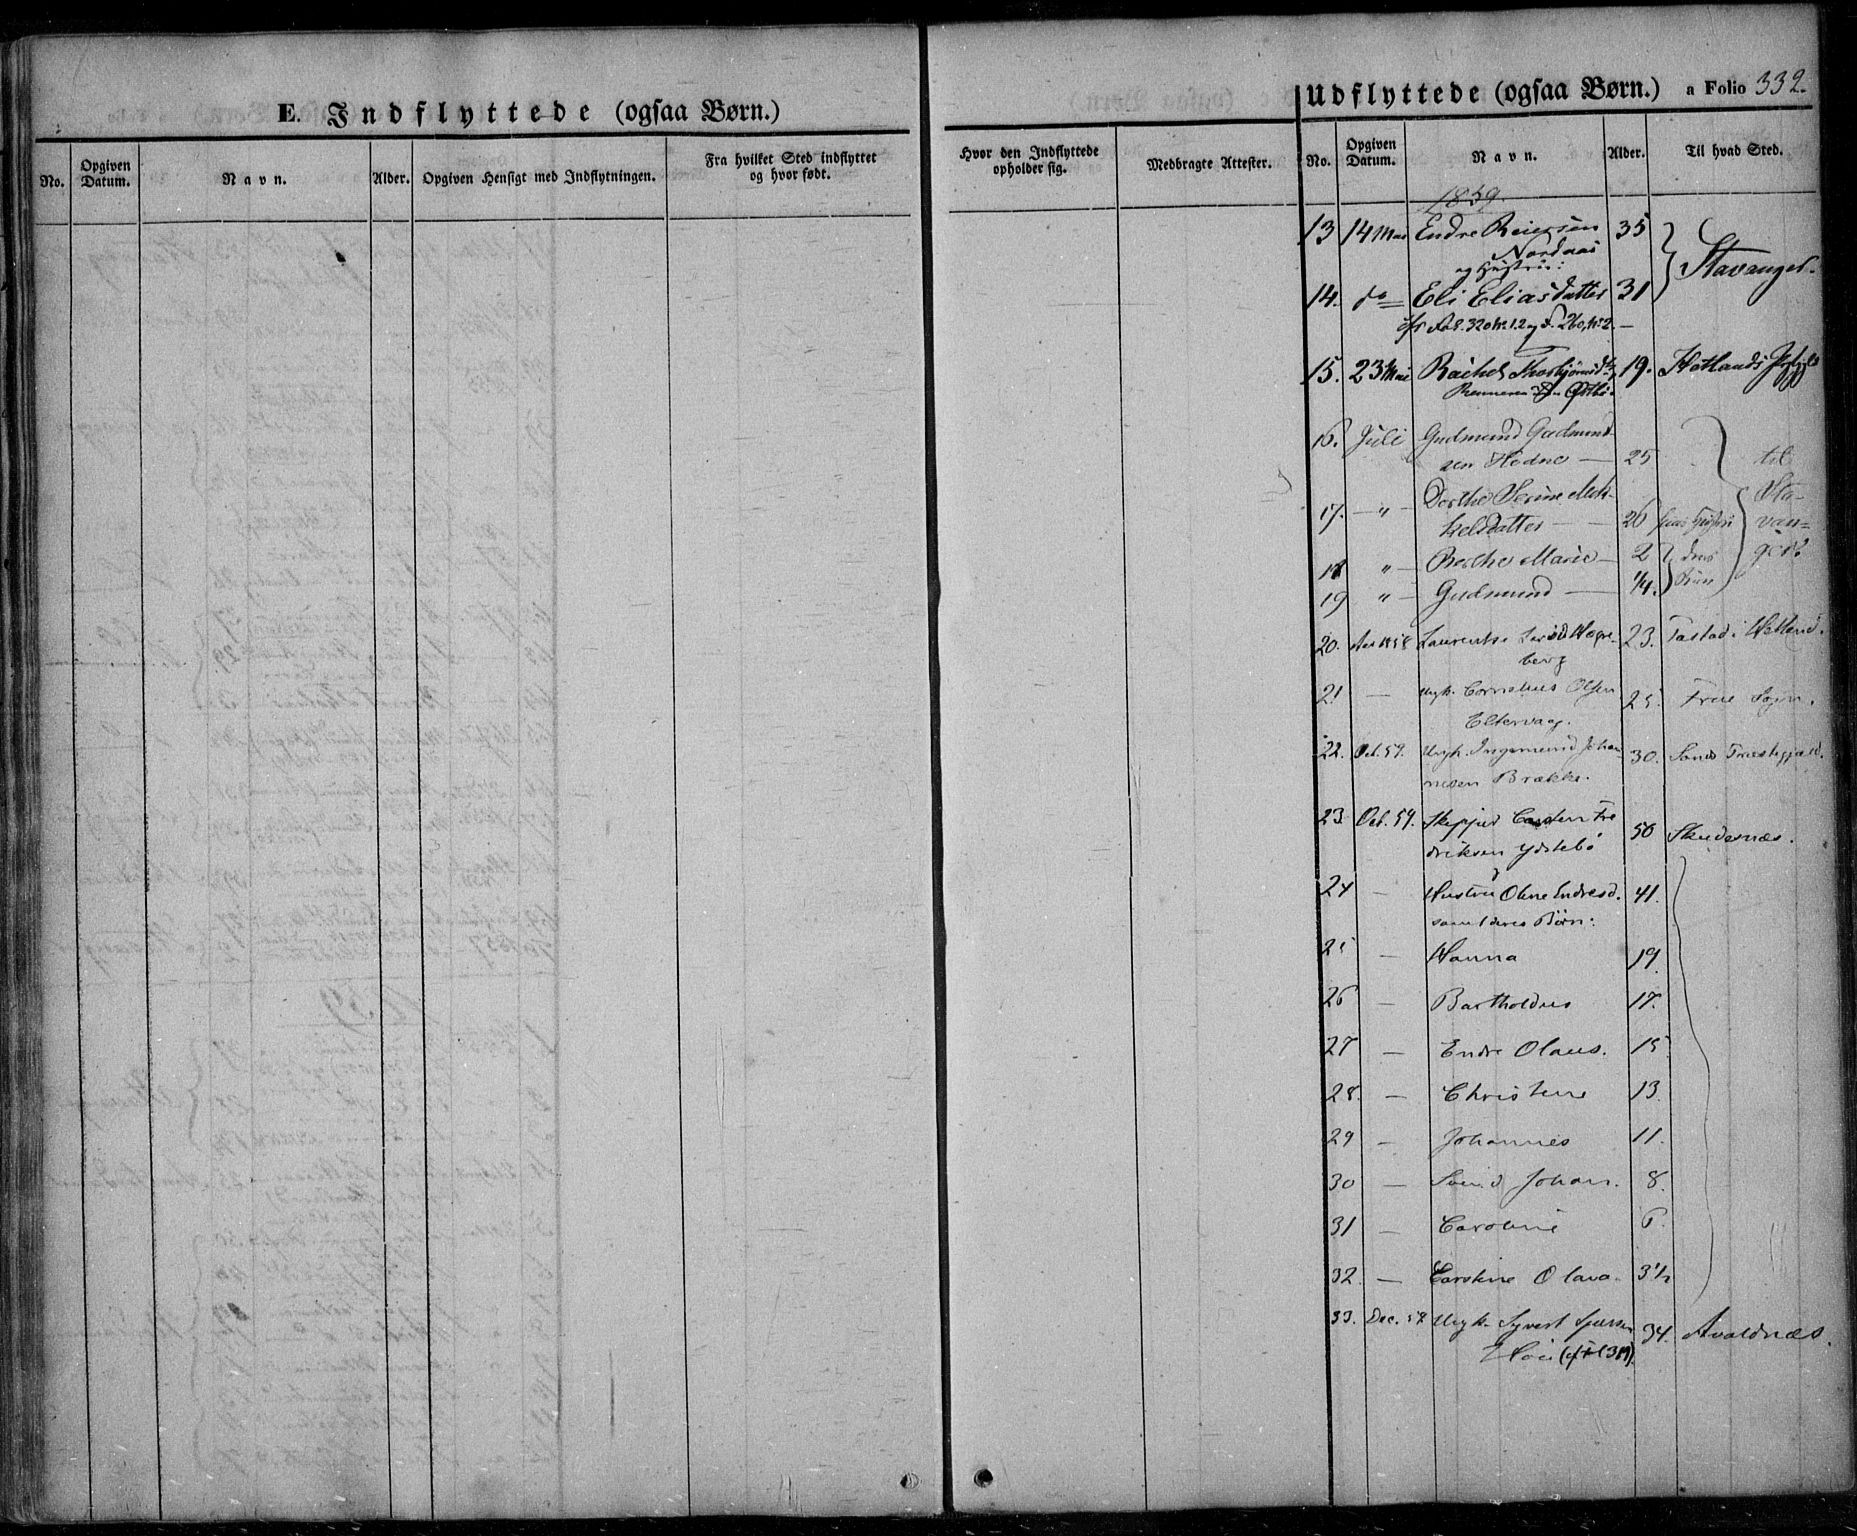 E. Indflyttede (ogsaa Børn.)
No.
Opgiven Datum.
Navn.
Alder.
Opgiven Hensigt med Indflytningen.
Fra hvilket Sted indflyttet og hvor født.
Hvor den Indflyttede opholder sig.
Medbragte Attester.
Udflyttede (ogsaa Børn.) a Folio 332.
No.
Opgiven Datum.
Navn.
Alder.
Til hvad Sted.
1859.
13 14 Mai Endre Reiersen 35
Nordaas
og Hustru:
Stavanger.
14. do Eli Eliasdatter 31
cfr Fol. 320 No 12 og F. 260, No 2.
15. 23 Mai Rachel Thorbjørnsd. 19. Hetlands
16. Juli Gudmund Gudmund-
sen Hodne — 25
til
17. — " — Dorthe Serine Mik-
kelsdatter — 26 hans Hustru
Sta-
van-
ger
18 " — Berthe Marie — 2 deres
19 " — Gudmund — 1/4. Børn
20. 1858 Laurentse 23. Tastad i Hetland.
berg
21 — Ungk. Cornelius Olsen 25. Frue Sogn.
Eltervaag.
22. Oct. 59. Ungk. Ingemund Johan-
nesen Brække. 30. Sands Præstegjæld.
23 Oct. 59. Carsten Fre
driksen Ydstebø 50 Skudesnæs.
24 — Hustru Oline Endresd. 41.
samt deres Børn:
25 — Hanna 19.
26 — Bartholdus 17.
27 — Endre Olaus. 15.
28. — Christine 13.
29 — Johannes 11.
30 — Svend Johan. 8.
31 — Caroline 6.
32. — Carstine Olava. 3 1/2
33. Dec. 59 Ungk. Syvert 34. Avaldnæs.